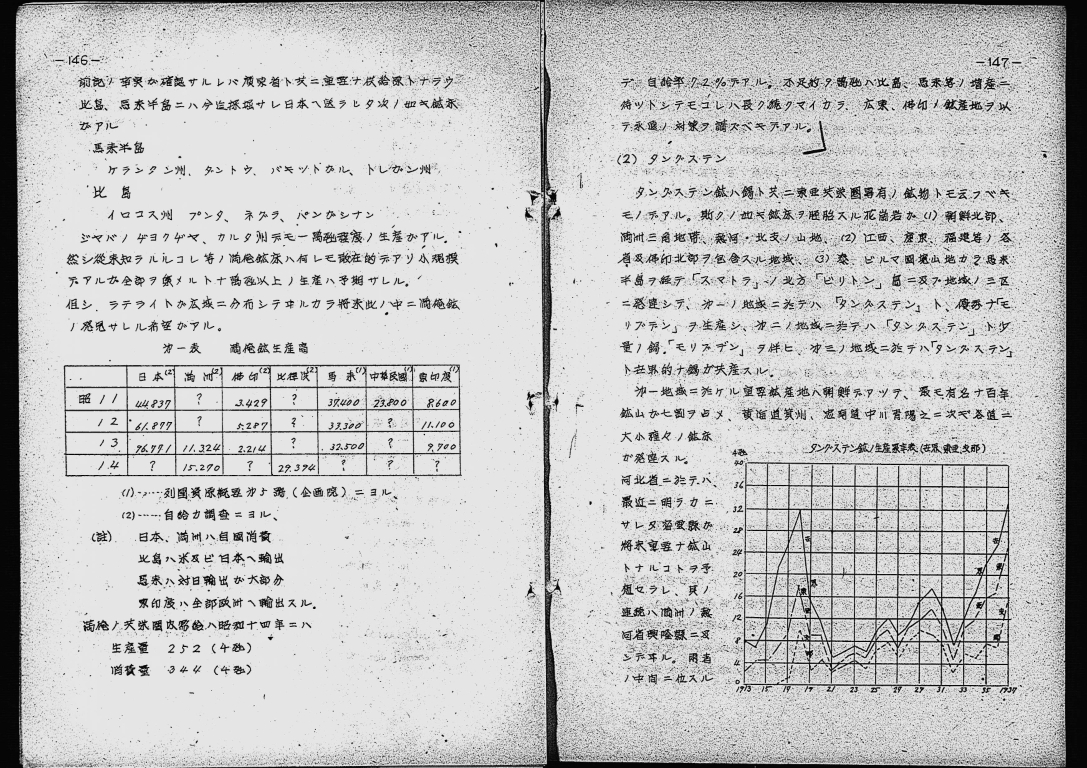 —146—
前記ノ事実が確認サルレバ廣東省ト共ニ重要ナ供給源トナラウ
比島、馬来半島ニハ今迄採掘サレ日本ヘ送ラレタ次ノ如キ鉱床
ガアル
馬来半島
ケランタン州、タントウ、バキツトバル、トレガン州
比島
イロコス州 プンタ、ネグラ、パンガシナン
ジヤバノヂヨクヂヤ、カルタ州デモ一萬瓲程度ノ生産ガアル。
然シ従来知ラルルコレ等ノ満俺鉱床ハ何レモ散在的デアリ小規模
デアルガ全部ヲ集メルト十萬瓲以上ノ生産ハ予期サレル。
但シ、ラテライトガ広域ニ分布シテヰルカラ将来此ノ中ニ満俺鉱
ノ発見サレル希望ガアル。
第一表 満俺鉱生産高
日本(2) 満洲(2) 佛印(2) 比律賓(2) 馬来(1) 中華民國(1) 東印度(1)
昭11 44.837 ? 3.429 ? 37.400 23.800 8.600
12 61.877 ? 5.287 ? 33.300 ? 11.100
13 76.771 11.324 2.214 ? 32.500 ? 9.700
14 ? 15.290 ? 29.394 ? ? ?
(1)……列國資源概要第5篇(企画院)ニヨル、
(2)……自給力調査ニヨル、
(註) 日本、満洲ハ自國消費
比島ハ米及ビ日本ヘ輸出
馬来ハ対日輸出ガ大部分
東印度ハ全部欧洲ヘ輸出スル。
満俺ノ共栄圏内需給ハ昭和十四年ニハ
生産量 252(千瓲)
消費量 344(千瓲)
—147—
デ、自給率72%デアル。不足約9萬瓲ハ比島、馬来等ノ増産ニ
俟ツトシテモコレハ長ク続クマイカラ、広東、佛印ノ鉱産地ヲ以
テ永遠ノ対策ヲ講スベキデアル。
(2) タングステン
タングステン鉱ハ錫ト共ニ東亜共栄圏専有ノ鉱物トモ云フベキ
モノデアル。斯クノ如キ鉱床ヲ胚胎スル花崗岩ガ(1)朝鮮北部、
満洲三角地帯、熱河・北支ノ山地、(2)江西、廣東、福建等ノ各
省及佛印北部ヲ包含スル地域、(3)泰、ビルマ國境山地カラ馬来
半島ヲ経テ「スマトラ」ノ北方「ビリトン」島ニ及ブ地域ノ三区
ニ発達シテ、第一ノ地域ニ於テハ「タングステン」ト、優秀ナ「モ
リブデン」ヲ生産シ、第二ノ地域ニ於テハ「タングステン」ト少
量ノ錫、「モリブデン」ヲ伴ヒ、第三ノ地域ニ於テハ「タングステン」
ト世界的ナ錫ガ共産スル。
第一地域ニ於ケル重要鉱産地ハ朝鮮デアツテ、最モ有名ナ百年
鉱山ガ七割ヲ占メ、黄海道箕州、忠南道中川青陽之ニ次ギ各道ニ
大小種々ノ鉱床
ガ発達スル。
河北省ニ於テハ、
最近ニ明ラカニ
サレタ密雲縣ガ
将来重要ナ鉱山
トナルコトヲ予
想セラレ、其ノ
連続ハ満洲ノ熱
河省興隆縣ニ及
ンデヰル。両者
ノ中間ニ位スル
タングステン鉱ノ生産累年表
千瓲
40
36
32
28
24
20
16
12
8
4
0
1913 15 17 19 21 23 25 27 29 31 33 35 1937